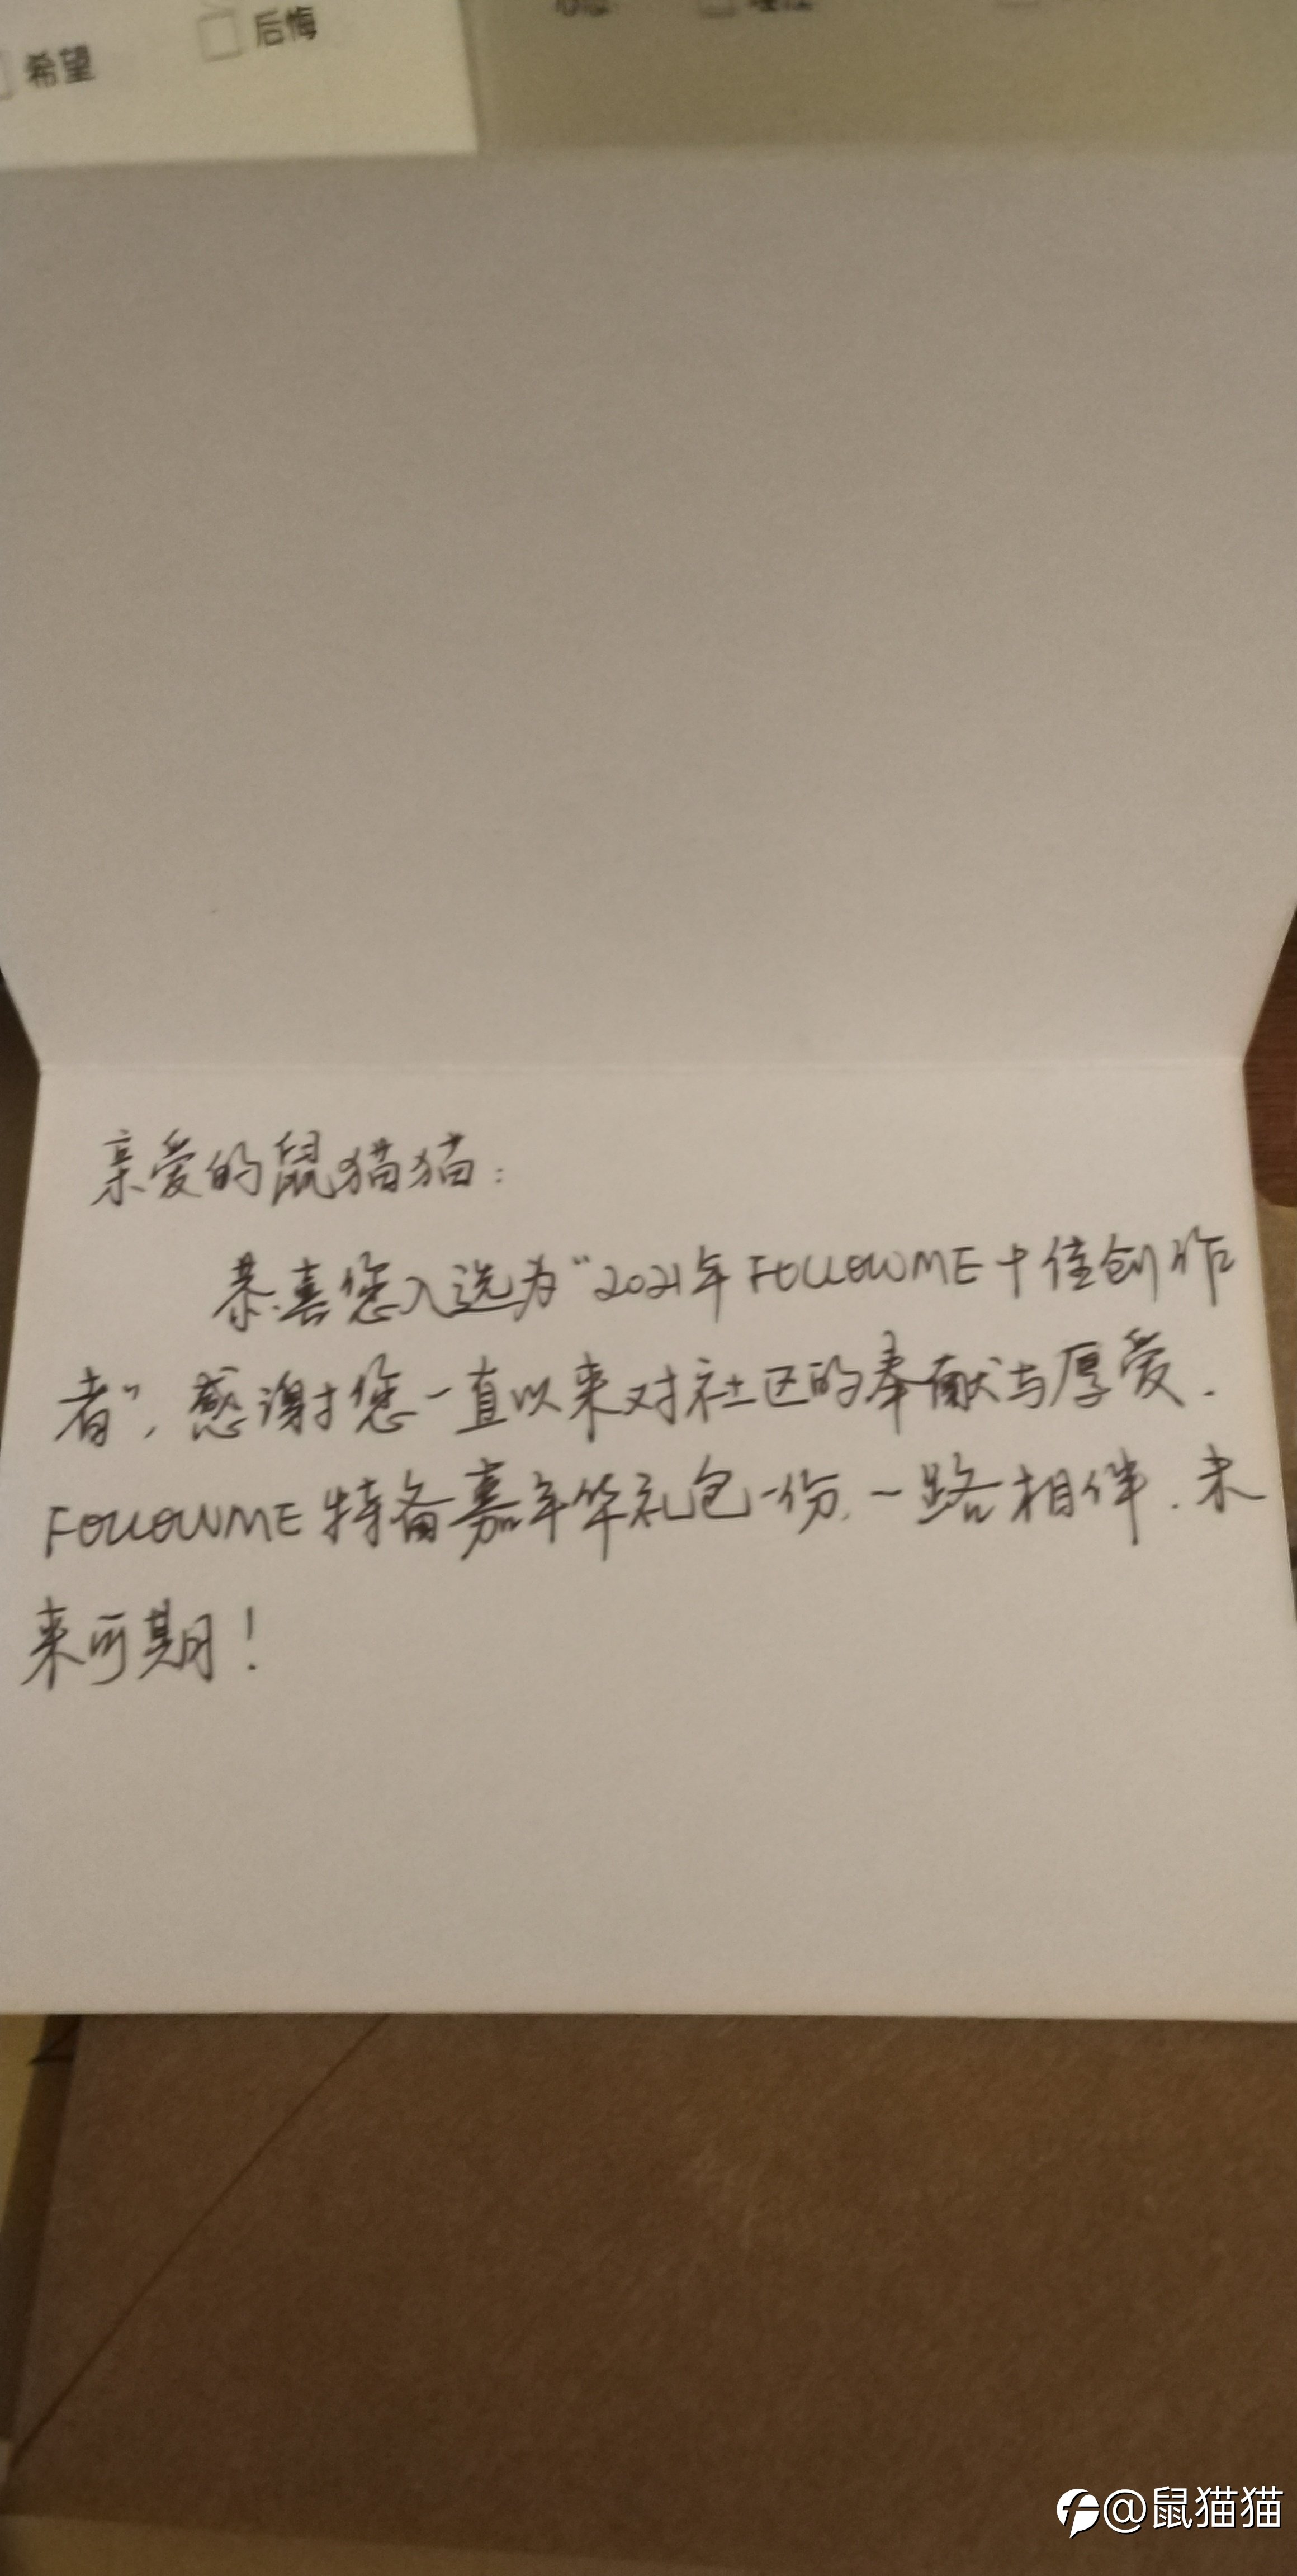 希望
后悔
亲爱的鼠猫猫：
恭喜您入选为“2021年FOLLOWME十佳创作
者”，感谢您一直以来对社区的奉献与厚爱.
FOLLOWME特备嘉年华礼包一份，一路相伴.未
来可期！
@鼠猫猫